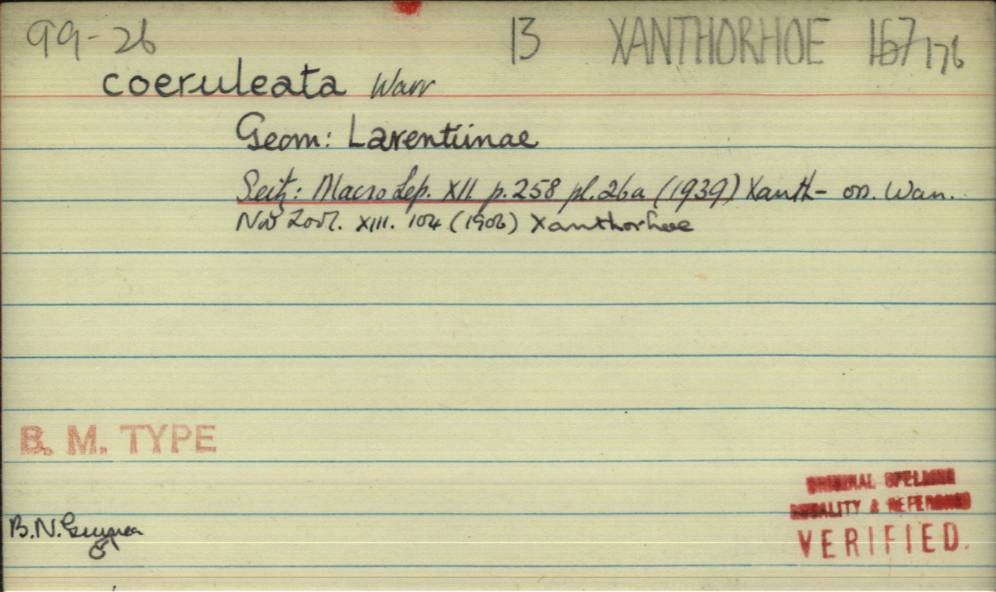 99-26 13 XANTHORHOE 167 176
coeruleata Warr
Geom: Larentiinae
Seitz: Macro Lep. XII p.258 pl.26a (1939) Xanth- on. Warr.
Nov Zool. XIII. 104 (1906) Xanthorhoe
B. M. TYPE
ORIGINAL SPELLING
LOCALITY & REFERENCE
B.N.Guinea
VERIFIED.